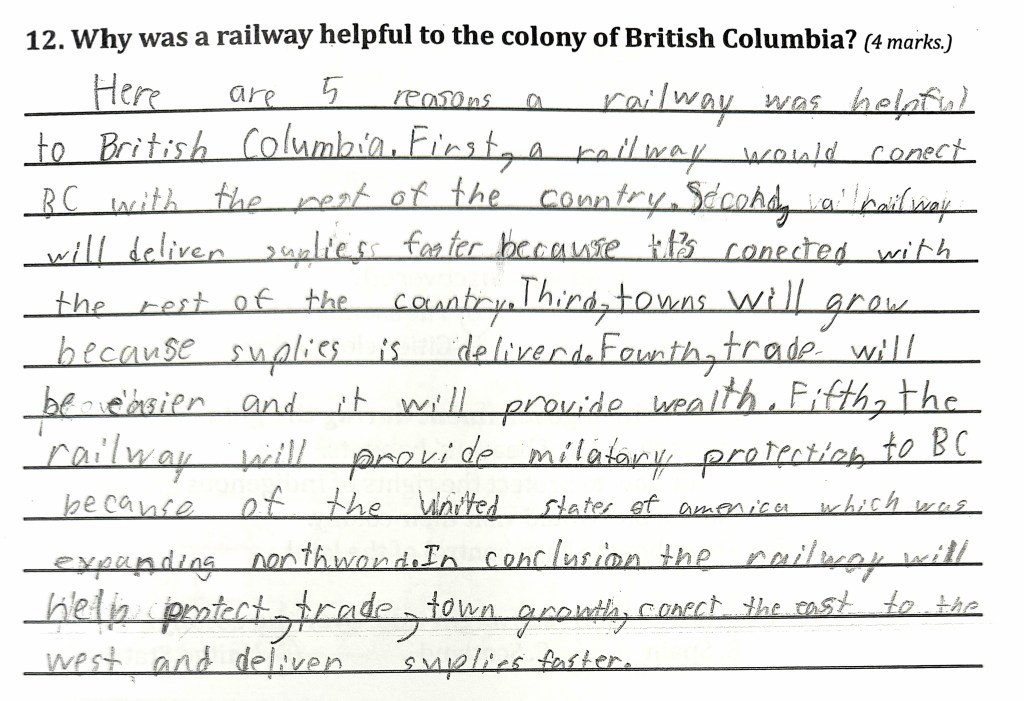 12. Why was a railway helpful to the colony of British Columbia? (4 marks.)
Here are 5 reasons a railway was helpful
to British Columbia. First, a railway would conect
BC with the rest of the country. Second, railway
will deliver supliess faster because it's conected with
the rest of the country. Third, towns will grow
because suplies is deliverd. Fourth, trade will
be easier and it will provide wealth. Fifth, the
railway will provide milatary protection to BC
because of the United states of america which was
expanding northword. In conclusion the railway will
help protect, trade, town growth, conect the east to the
west and deliver suplies faster.